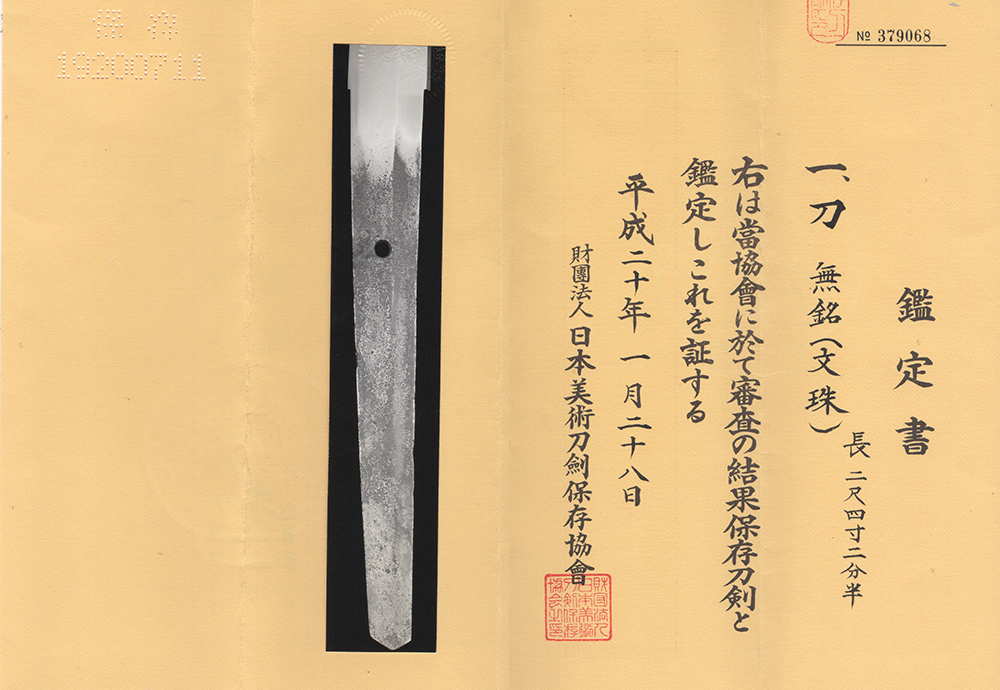 № 379068
鑑定書
一、刀 無銘(文珠)
長 二尺四寸二分半
右は當協會に於て審査の結果保存刀剣と
鑑定しこれを証する
平成二十年一月二十八日
財團法人日本美術刀劍保存協會
財団法人日本美術刀剣保存協会之印
保存
19200711